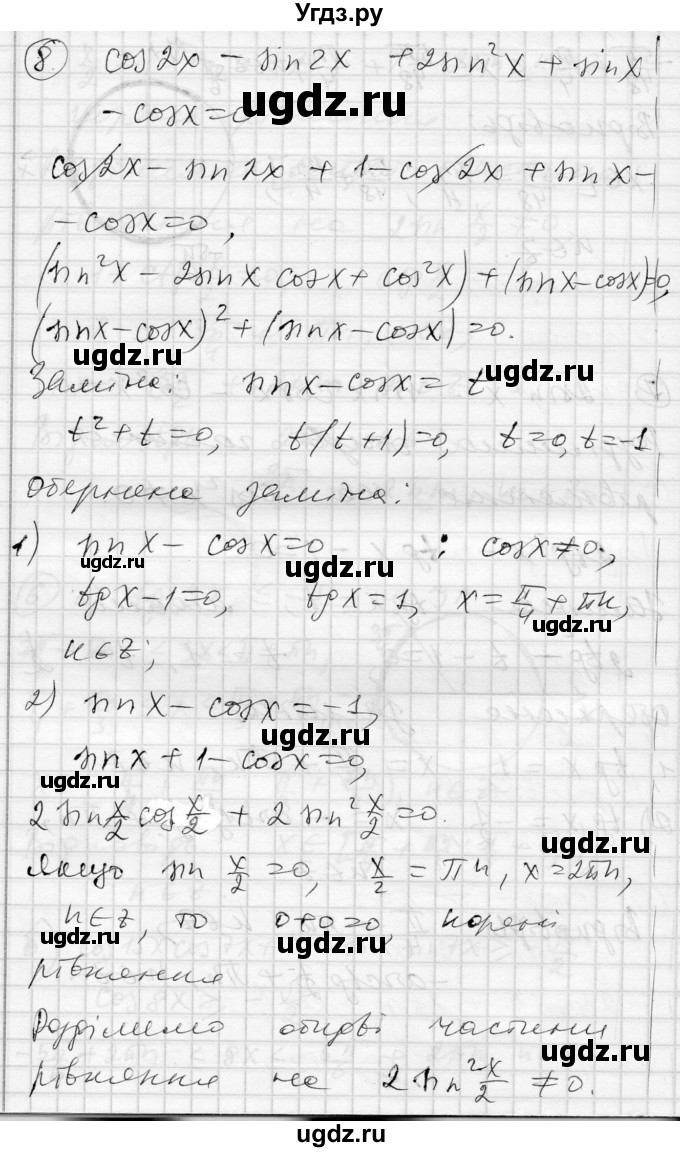 Угдз.ру
8. cos2x − sin2x + 2sin²x + sinx
− cosx = 0
ugdz.ru
cos2x − sin2x + 1 − cos2x + sinx −
− cosx = 0,
(sin²x − 2sinx cosx + cos²x) + (sinx − cosx) = 0,
(sinx − cosx)² + (sinx − cosx) = 0.
ugdz.ru ugdz.ru
Заміна: sinx − cosx = t
t² + t = 0, t(t+1) = 0, t = 0, t = −1
Обернена заміна:
1) sinx − cosx = 0 : cosx ≠ 0.,
ugdz.ru ugdz.ru
tgx − 1 = 0, tgx = 1, x = π/4 + πn,
ugdz.ru
n ∈ Z;
2) sinx − cosx = −1,
ugdz.ru
sinx + 1 − cosx = 0,
ugdz.ru
2 sin x/2 cos x/2 + 2 sin² x/2 = 0.
ugdz.ru
Якщо sin x/2 = 0, x/2 = πn, x = 2πn,
n ∈ Z, то 0+0=0, корені
ugdz.ru ugdz.ru
рівняння
Розділимо обидві частини
ugdz.ru
рівняння на 2 sin² x/2 ≠ 0.
ugdz.ru
ugdz.ru